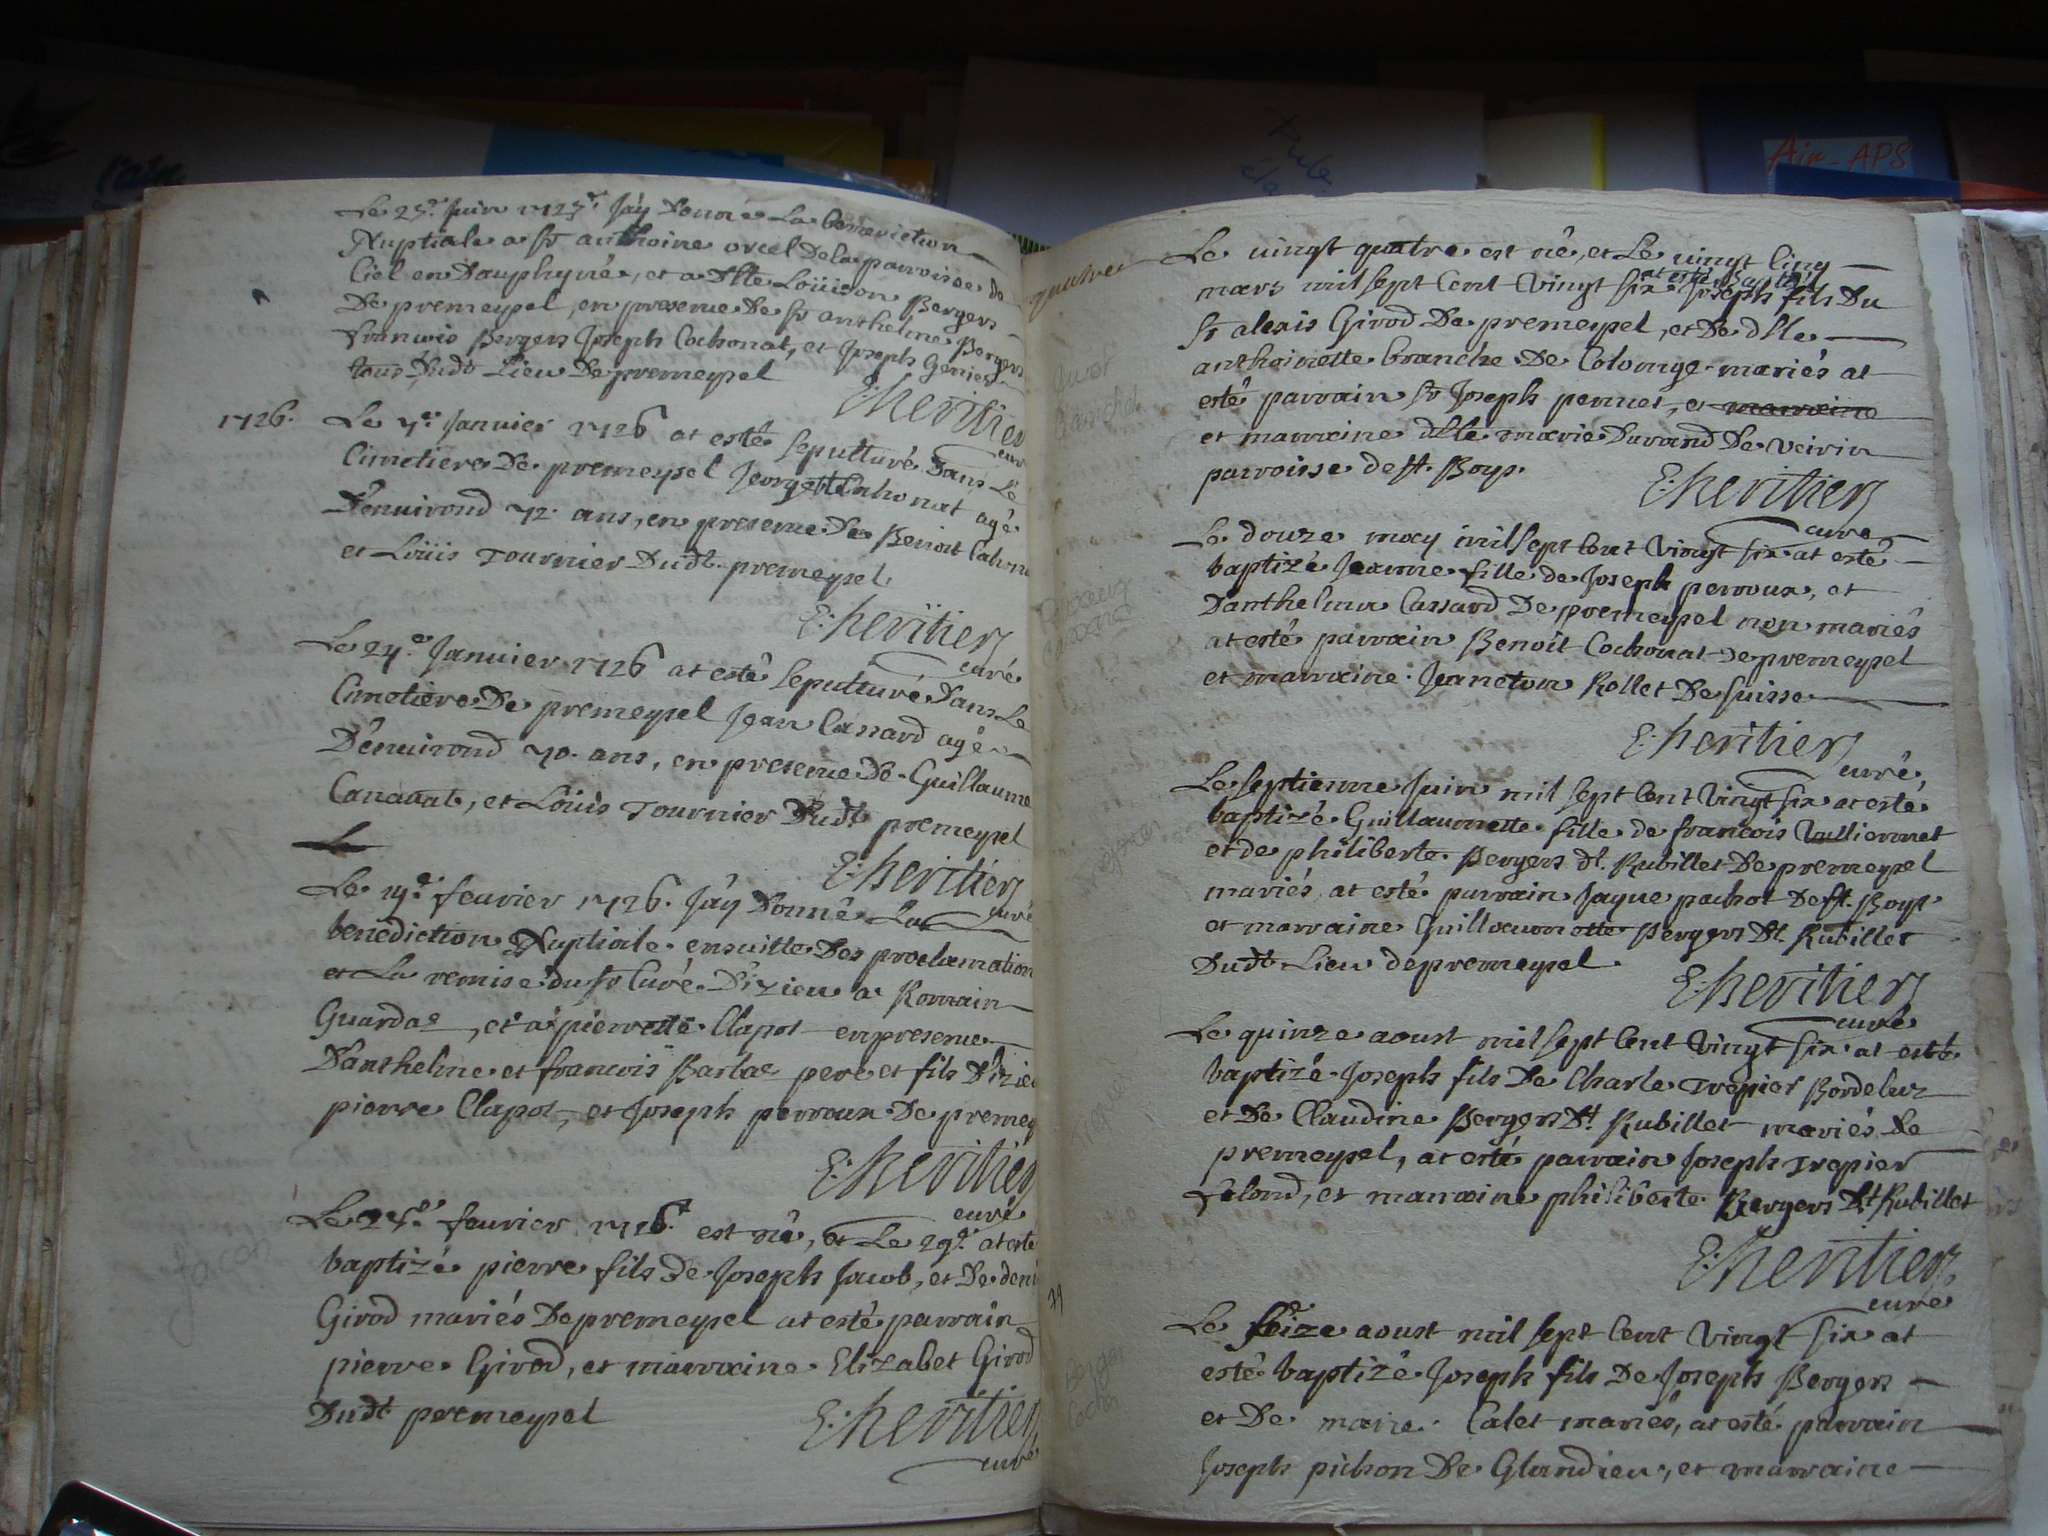 Le 25e Juin 1725e Jay Donné La benediction
Nuptiale a sr anthoine orcel De la parroisse de
Ciel en Dauphyné, et a Dlle Loüison Bergers
De premeysel, en presence De sr anthelme Bergers
francois Bergers Joseph Cochonat, et Joseph Genier
tous Dudt Lieu De premeysel
E: heritier
curé
1726.
Le 7e Januier 1726 at esté sepulturé Dans Le
Cimetiere De premeysel Jeorge Cahonat agé
D'enuirond 72. ans, en presence De Benoit
et Loüis Tournier Dudt premeysel.
E: heritier
curé
Le 27e Januier 1726 at esté sepulturé Dans Le
Cimetiere De premeysel Jean Cassard agé
D'enuirond 70. ans, en presence de Guillaume
Canauat, et Loüis Tournier Dudt premeysel
E: heritier
curé
Le 19e feurier 1726. Jáy Donné La
benediction Nuptiale ensuitte Des proclamation
et La remise du sr Curé D'izieu a Romain
Guardaz, et a pierrette Clapot en presence
D'anthelme et francois Barbaz pere et fils D'izieu
pierre Clapot, et Joseph perroux De premey
E: heritier
curé
Le 25e feurier 1726e est né, et Le 29e at esté
baptizé pierre fils de Joseph Jacob, et De deni
Girod mariés De premeysel at esté parrain
pierre Girod, et marraine Elizabet Girod
Dudt premeysel
E: heritier
curé
Jacob
quatre
Le uingt quatre est né, et Le uingt cinq
at esté Baptizé
mars mil sept Cent Vingt six Joseph fils Du
sr alexis Girod De premeysel, et De dlle
anthoinette branche De Colonge mariés at
esté parrain sr Joseph pernet, et marraine
et marraine dlle marie Durand De Veirin
parroisse de st. Boys.
E: heritier
curé
Le douze may mil sept Cent Vingt six at esté
baptizé Jeanne fille de Joseph perroux, et
D'anthelma Cassard De premeysel non mariés
at esté parrain Benoit Cochonat de premeysel
et marraine Jeaneton Rollet De suisse
E: heritier
curé
Le septienne Juin mil sept Cent Vingt six at esté
baptizé Guillaumette fille de francois Vulliermet
et de philiberte Bergers dt. Rubillet De premeysel
mariés at esté parrain Jaque pachot De st. Boys
et marraine Guillaumette Bergers Dt. Rubillet
Dudt Lieu de premeysel
E: heritier
curé
Le quinze aoust mil sept Cent Vingt six at esté
baptizé Joseph fils De Charle Trepier Bordelur
et De Claudine Bergers Dt Rubillet mariés de
premeysel, at esté parrain Joseph Trepier
Lelond, et marraine philiberte Bergers Dt Rubillet
E: heritier
curé
Le seize aoust mil sept Cent Vingt six at
esté baptizé Joseph fils De Joseph Bergers
et De marie Calet mariés, at esté parrain
Joseph pichon De Glandieu, et marraine
Air-APS